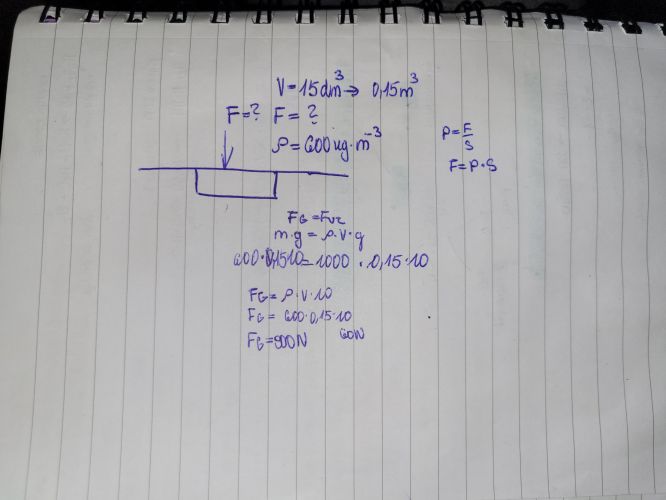 V = 15dm³ → 0,15m³
F = ? F = ?
ρ = 600 kg · m⁻³
P = F/S
F = P · S
FG = Fvz
m · g = ρ · V · g
600 · 0,15 10 = 1000 · 0,15 · 10
FG = ρ · V · 10
FG = 600 · 0,15 · 10
FG = 900N 60N